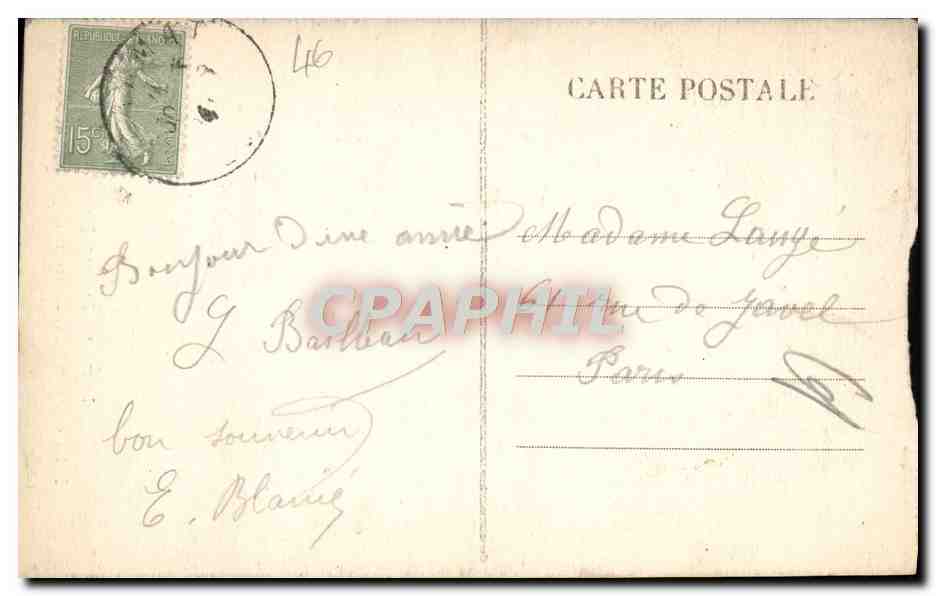 REPUBLIQUE FRANCAISE
15 c
46
CARTE POSTALE
Bonjour d'une amie
G Bailleau
bon souvenir
E. Blainé
Madame Langé
rue de Javel
Paris
CPAPHIL